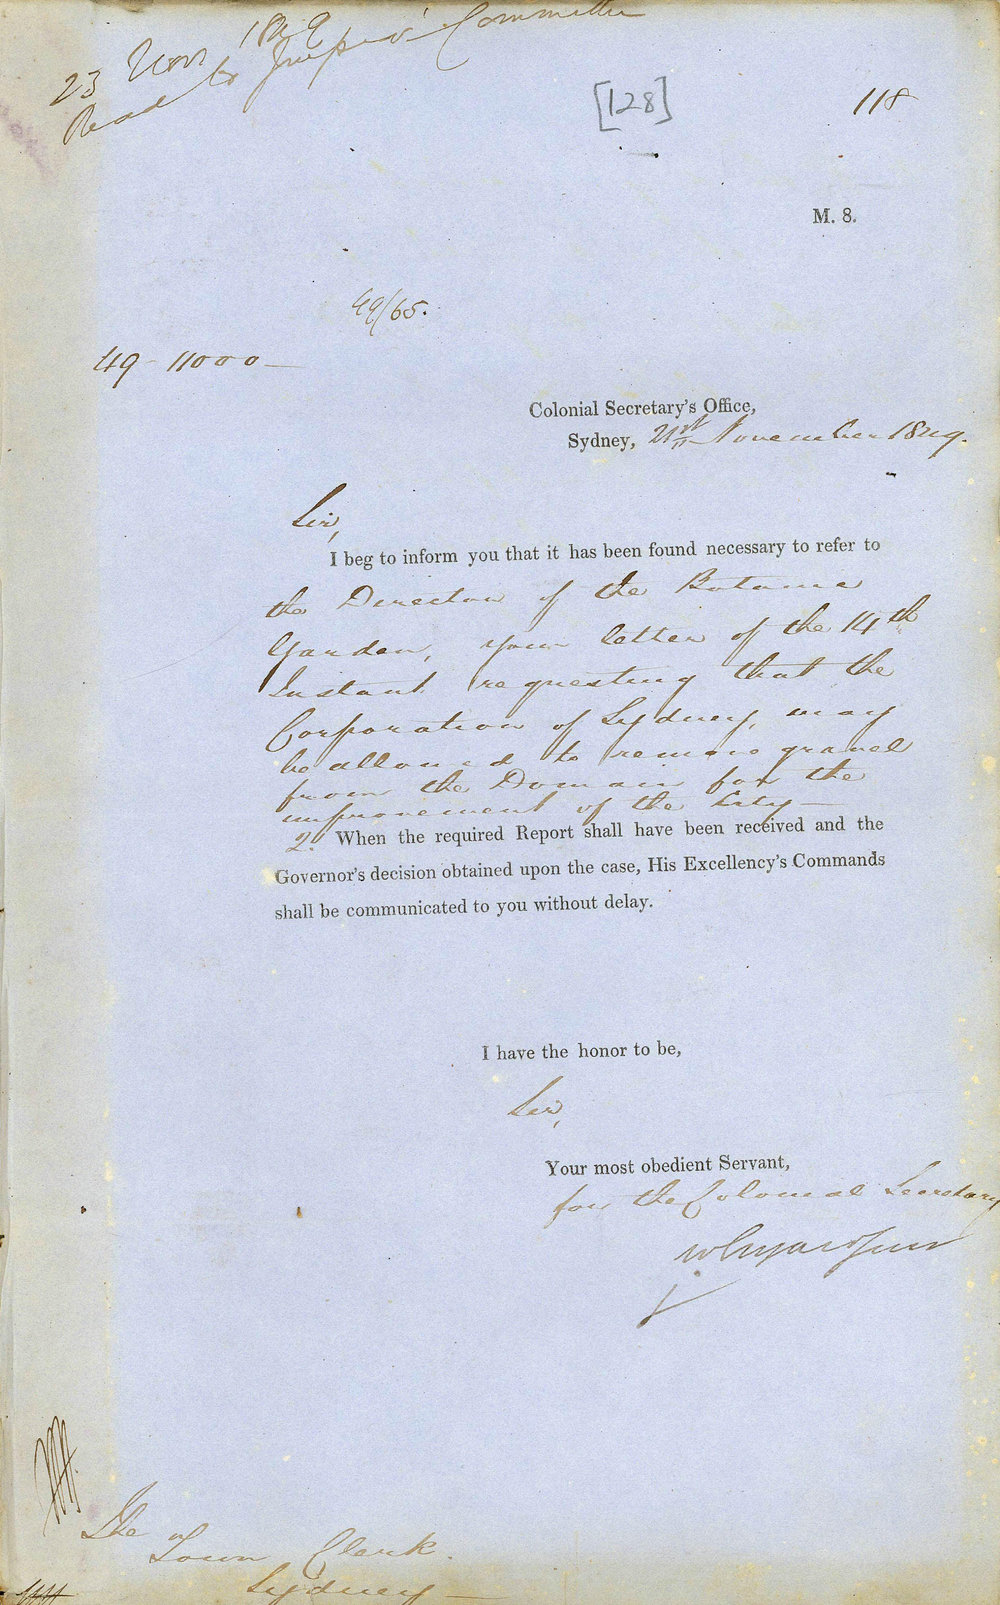 23 Novr 1849
Read to Improvt Committee
[128]
118
M. 8.
49/65.
49-11000-
Colonial Secretary's Office,
Sydney, 21st November 1849.
Sir,
I beg to inform you that it has been found necessary to refer to
the Director of the Botanic
Garden, your letter of the 14th
Instant requesting that the
Corporation of Sydney, may
be allowed to remove gravel
from the Domain for the
improvement of the City—
2. When the required Report shall have been received and the
Governor's decision obtained upon the case, His Excellency's Commands
shall be communicated to you without delay.
I have the honor to be,
Sir,
Your most obedient Servant,
for the Colonial Secretary
The
Town Clerk.
Sydney—